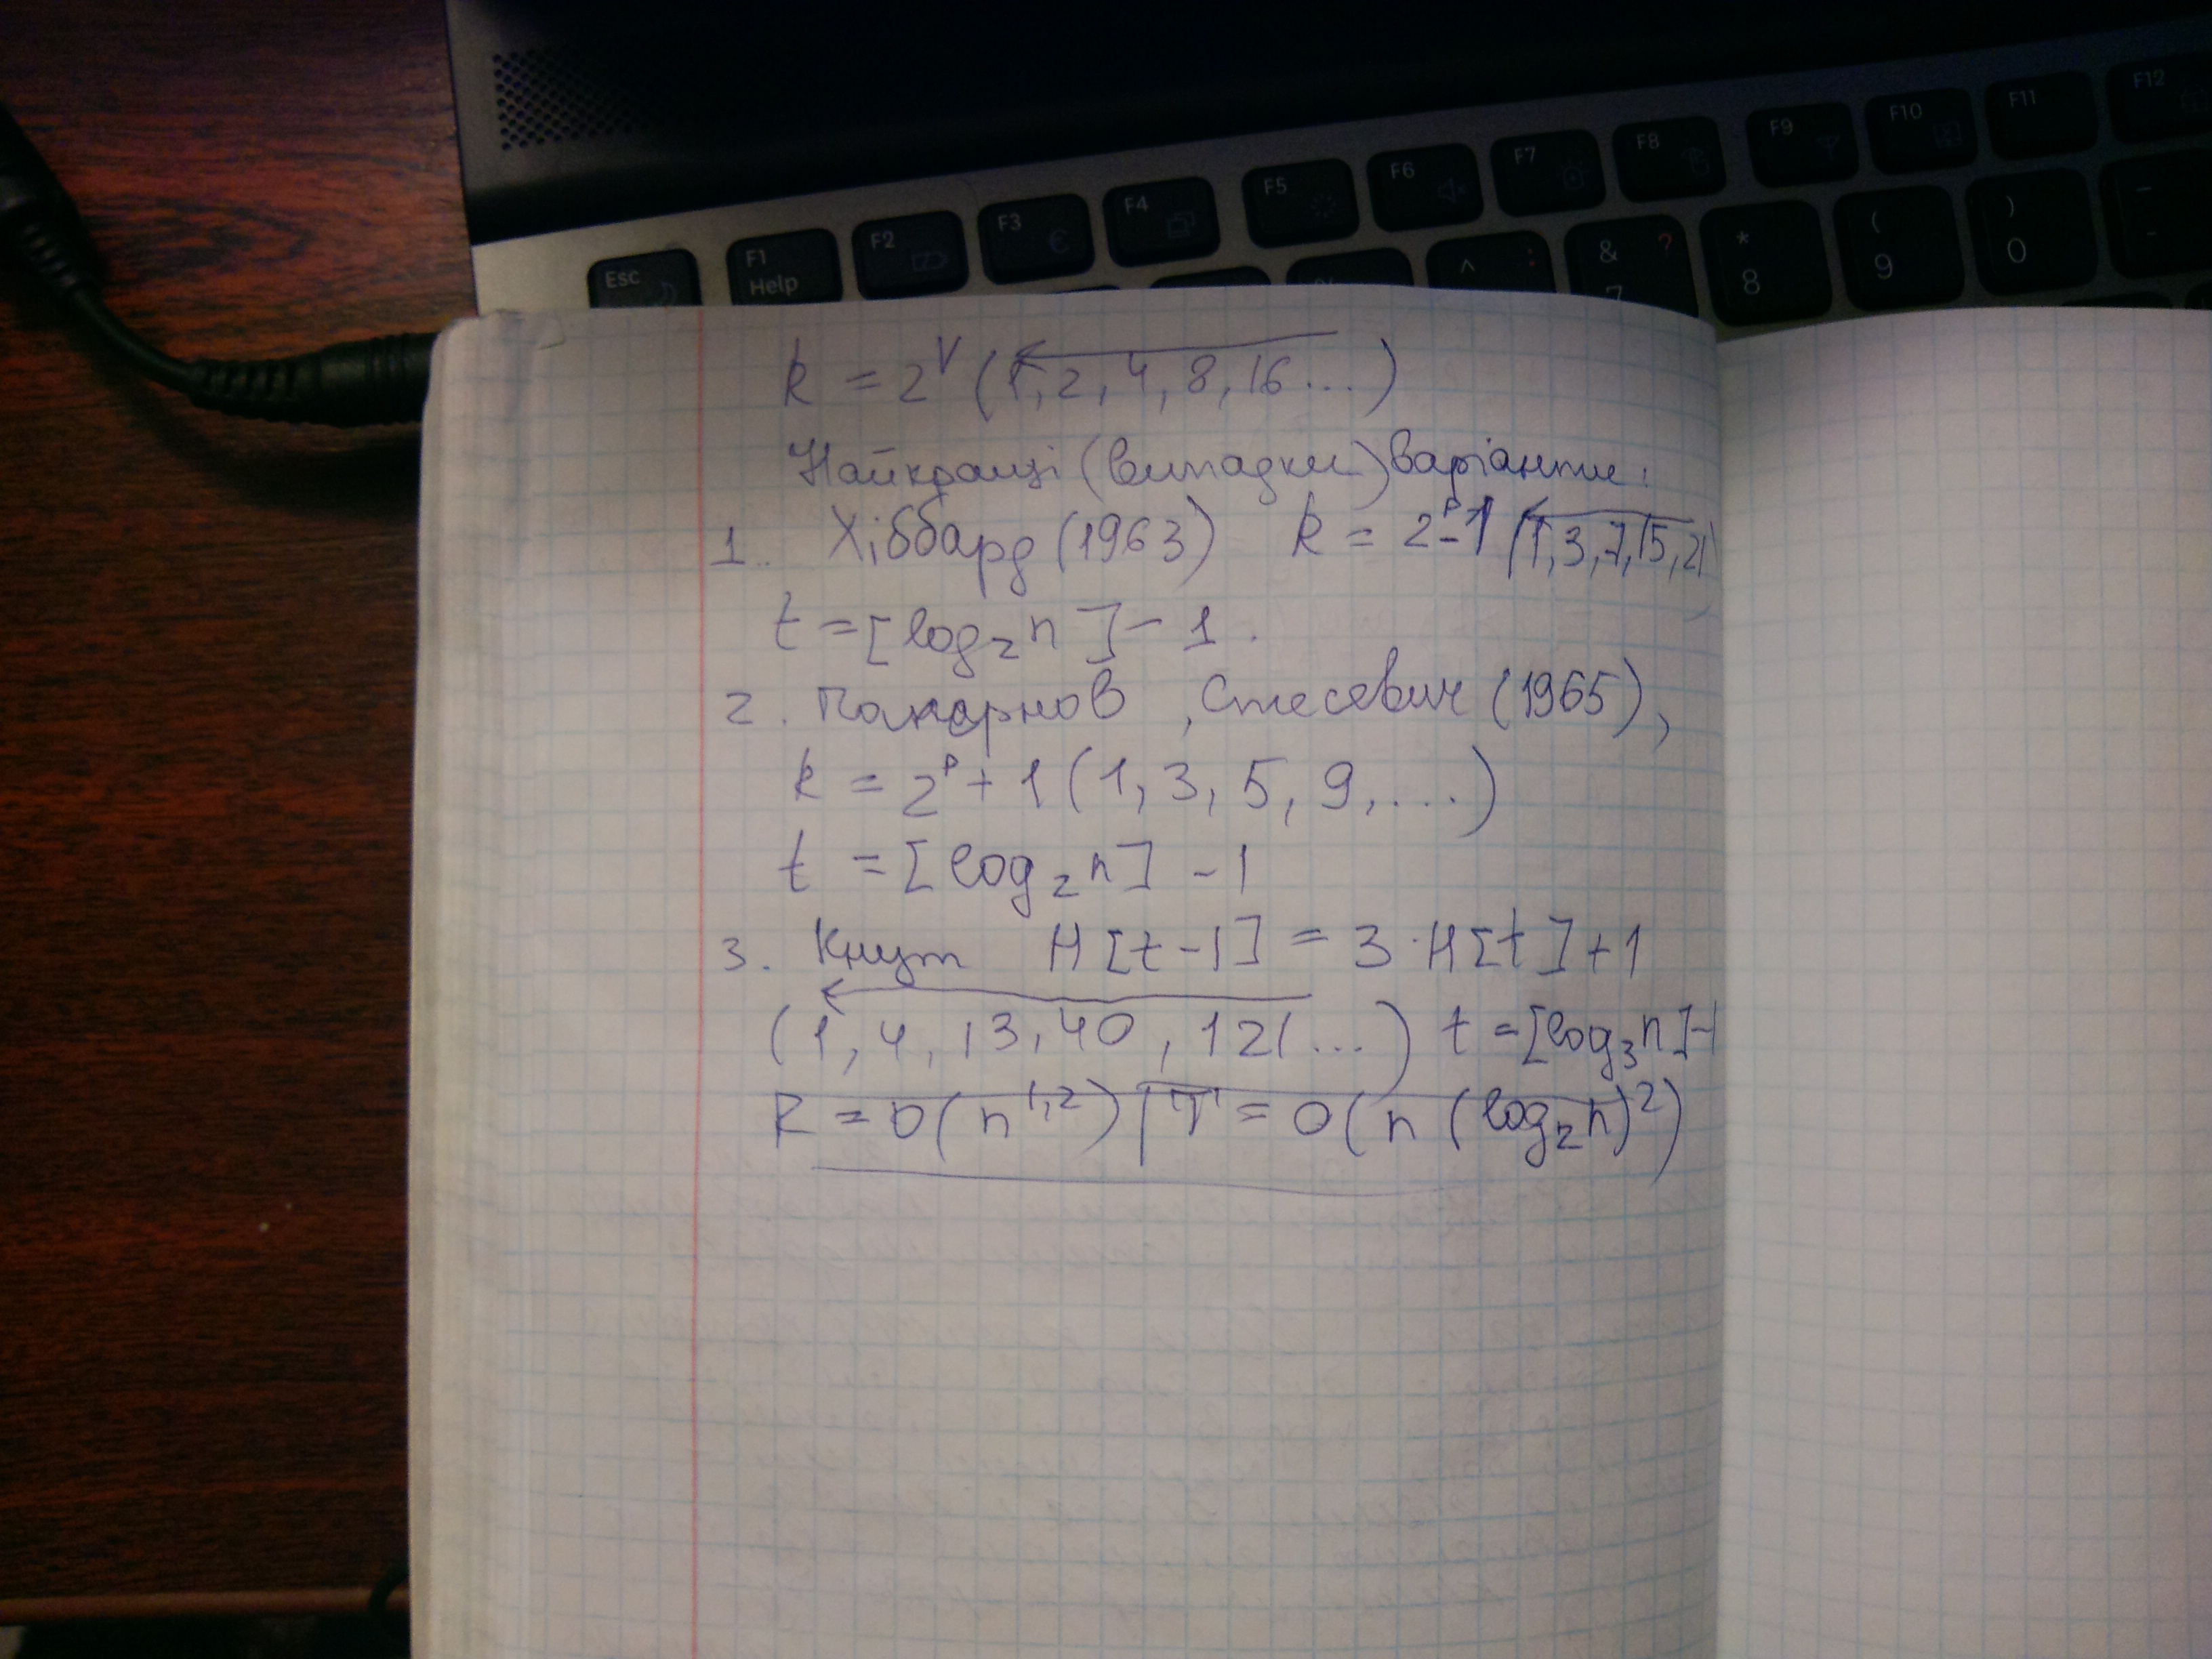 Esc F1 Help F2 F3 F4 F5 F6 F7 F8 F9 F10 F11 F12
^ : & ? 7 * 8 ( 9 ) 0 -
k = 2^V (1, 2, 4, 8, 16 ...)
Найкращі (випадки) варіанти:
1. Хіббард (1963) k = 2^P-1 (1, 3, 7, 15, 21
t = [log₂ n] - 1.
2. , Стесевич (1965),
k = 2^P + 1 (1, 3, 5, 9, ...)
t = [log₂ n] - 1
3. Кнут H[t-1] = 3·H[t] + 1
(1, 4, 13, 40, 121 ...) t = [log₃ n] -1
R = O(n^1,2) | T = O(n (log₂ n)²)